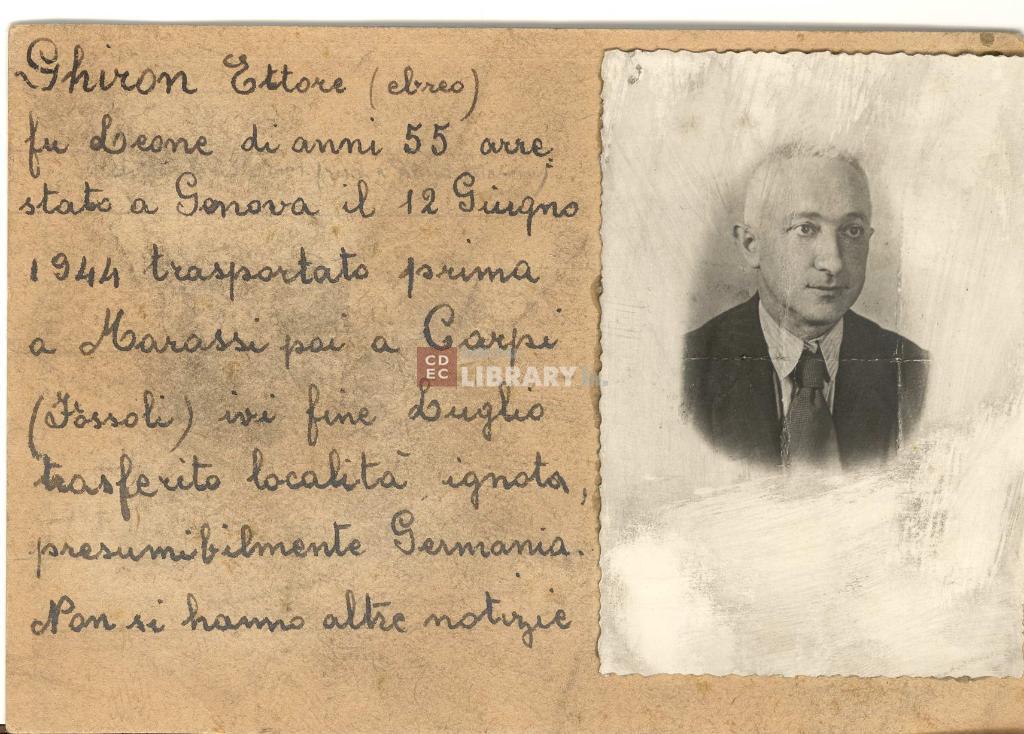 Ghiron Ettore (ebreo)
fu Leone di anni 55 arre=
stato a Genova il 12 Giugno
1944 trasportato prima
a Marassi poi a Carpi
(Fossoli) ivi fine Luglio
trasferito località ignota,
presumibilmente Germania.
Non si hanno altre notizie
CD
EC
LIBRARY